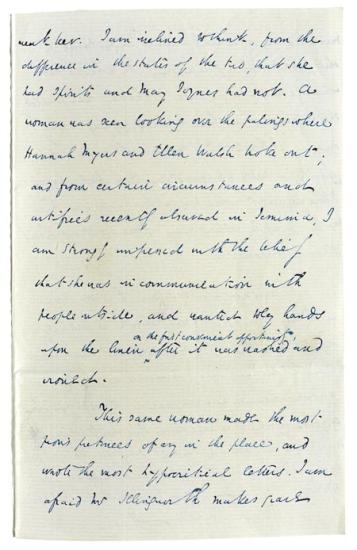 ment her. I am inclined to think, from the
difference in the states of the two, that she
had spirits and May Joynes had not. A
woman was seen looking over the palings where
Hannah Myers and Ellen Walsh broke out;
and from certain circumstances and
artifices recently observed in Jemima, I
am strongly impressed with the belief
that she was in communication with
people outside, and wanted to lay hands
on the first convenient opportunity,
upon the linen after it was washed and
ironed.
This same woman made the most
pious pretences of any in the place, and
wrote the most hypocritical letters. I am
afraid Mr Illingworth makes